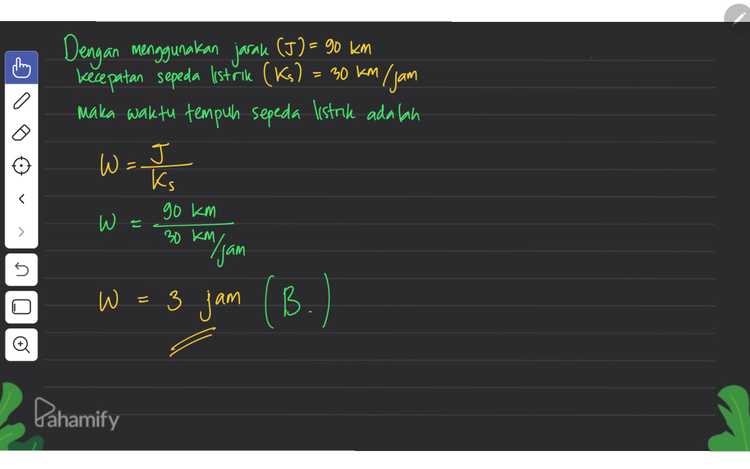 Dengan menggunakan jarak (J) = 90 km
kecepatan sepeda listrik (Ks) = 30 km/jam
Maka waktu tempuh sepeda listrik adalah
W = J
Ks
W = 90 km
30 km/jam
W = 3 jam (B.)
Pahamify